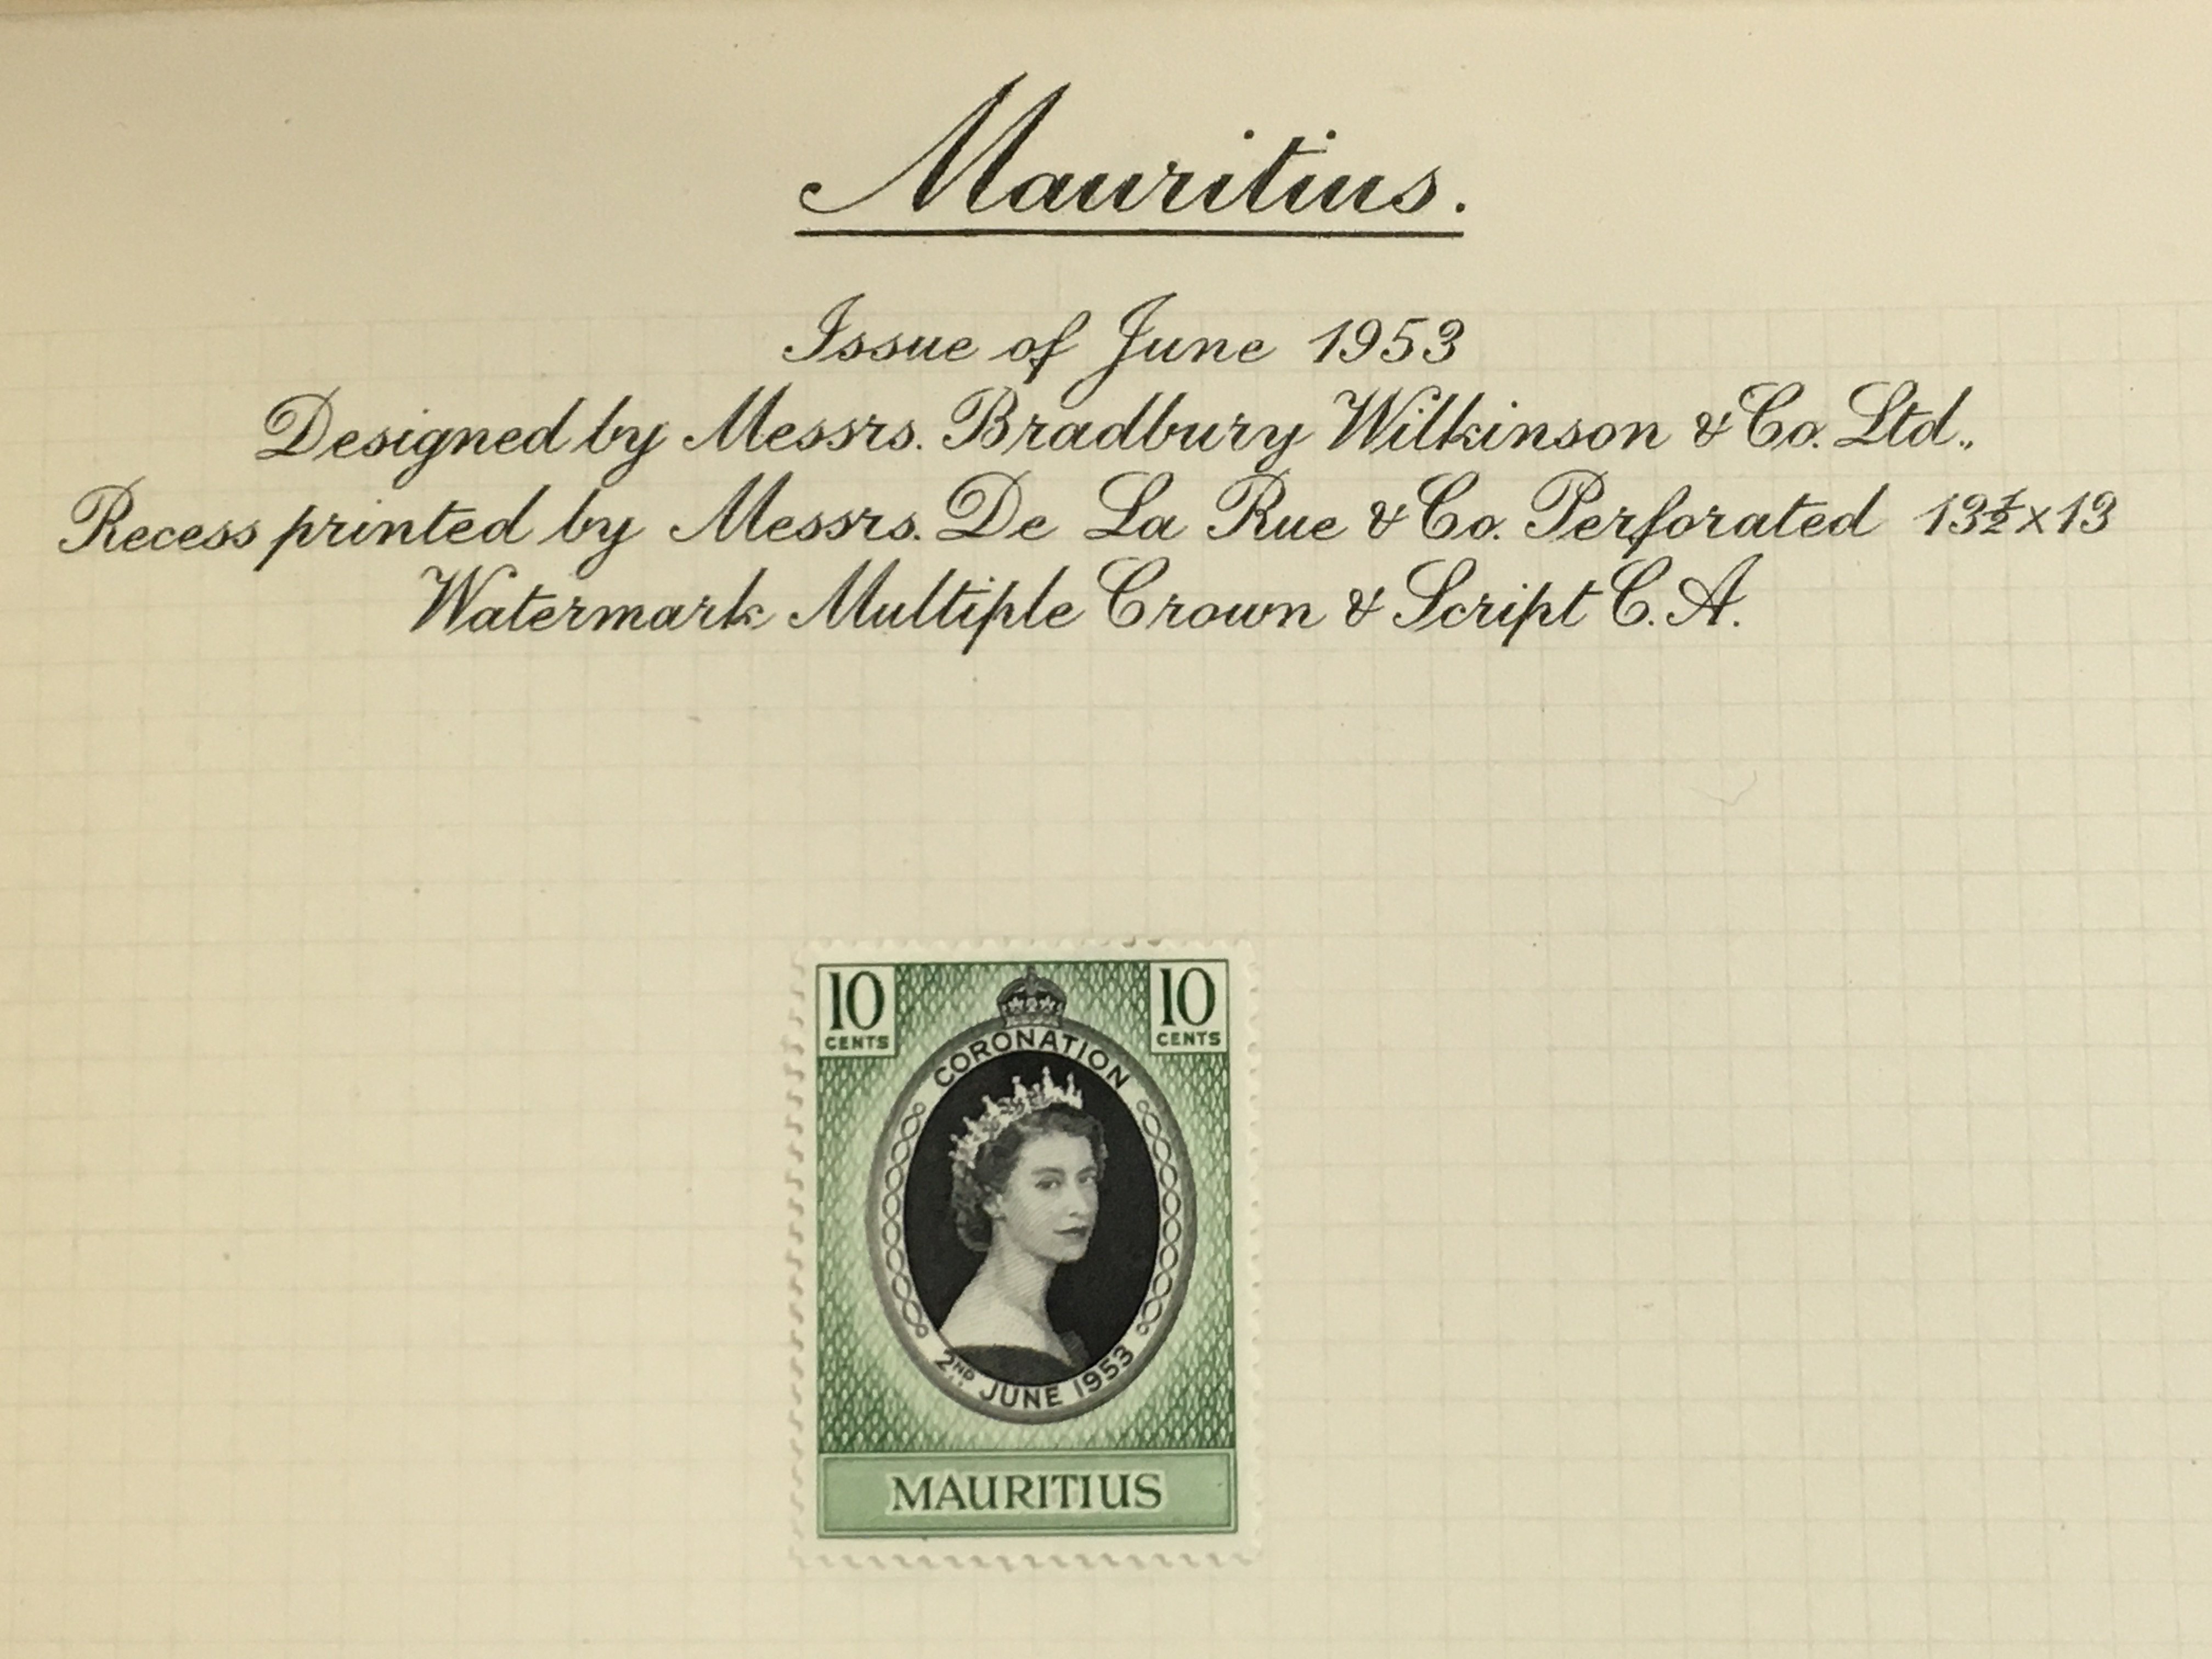 Mauritius.
Issue of June 1953
Designed by Messrs. Bradbury Wilkinson & Co. Ltd.,
Recess printed by Messrs. De La Rue & Co. Perforated 13½ x 13
Watermark Multiple Crown & Script C. A.
10 CENTS
10 CENTS
CORONATION
2ND JUNE 1953
MAURITIUS